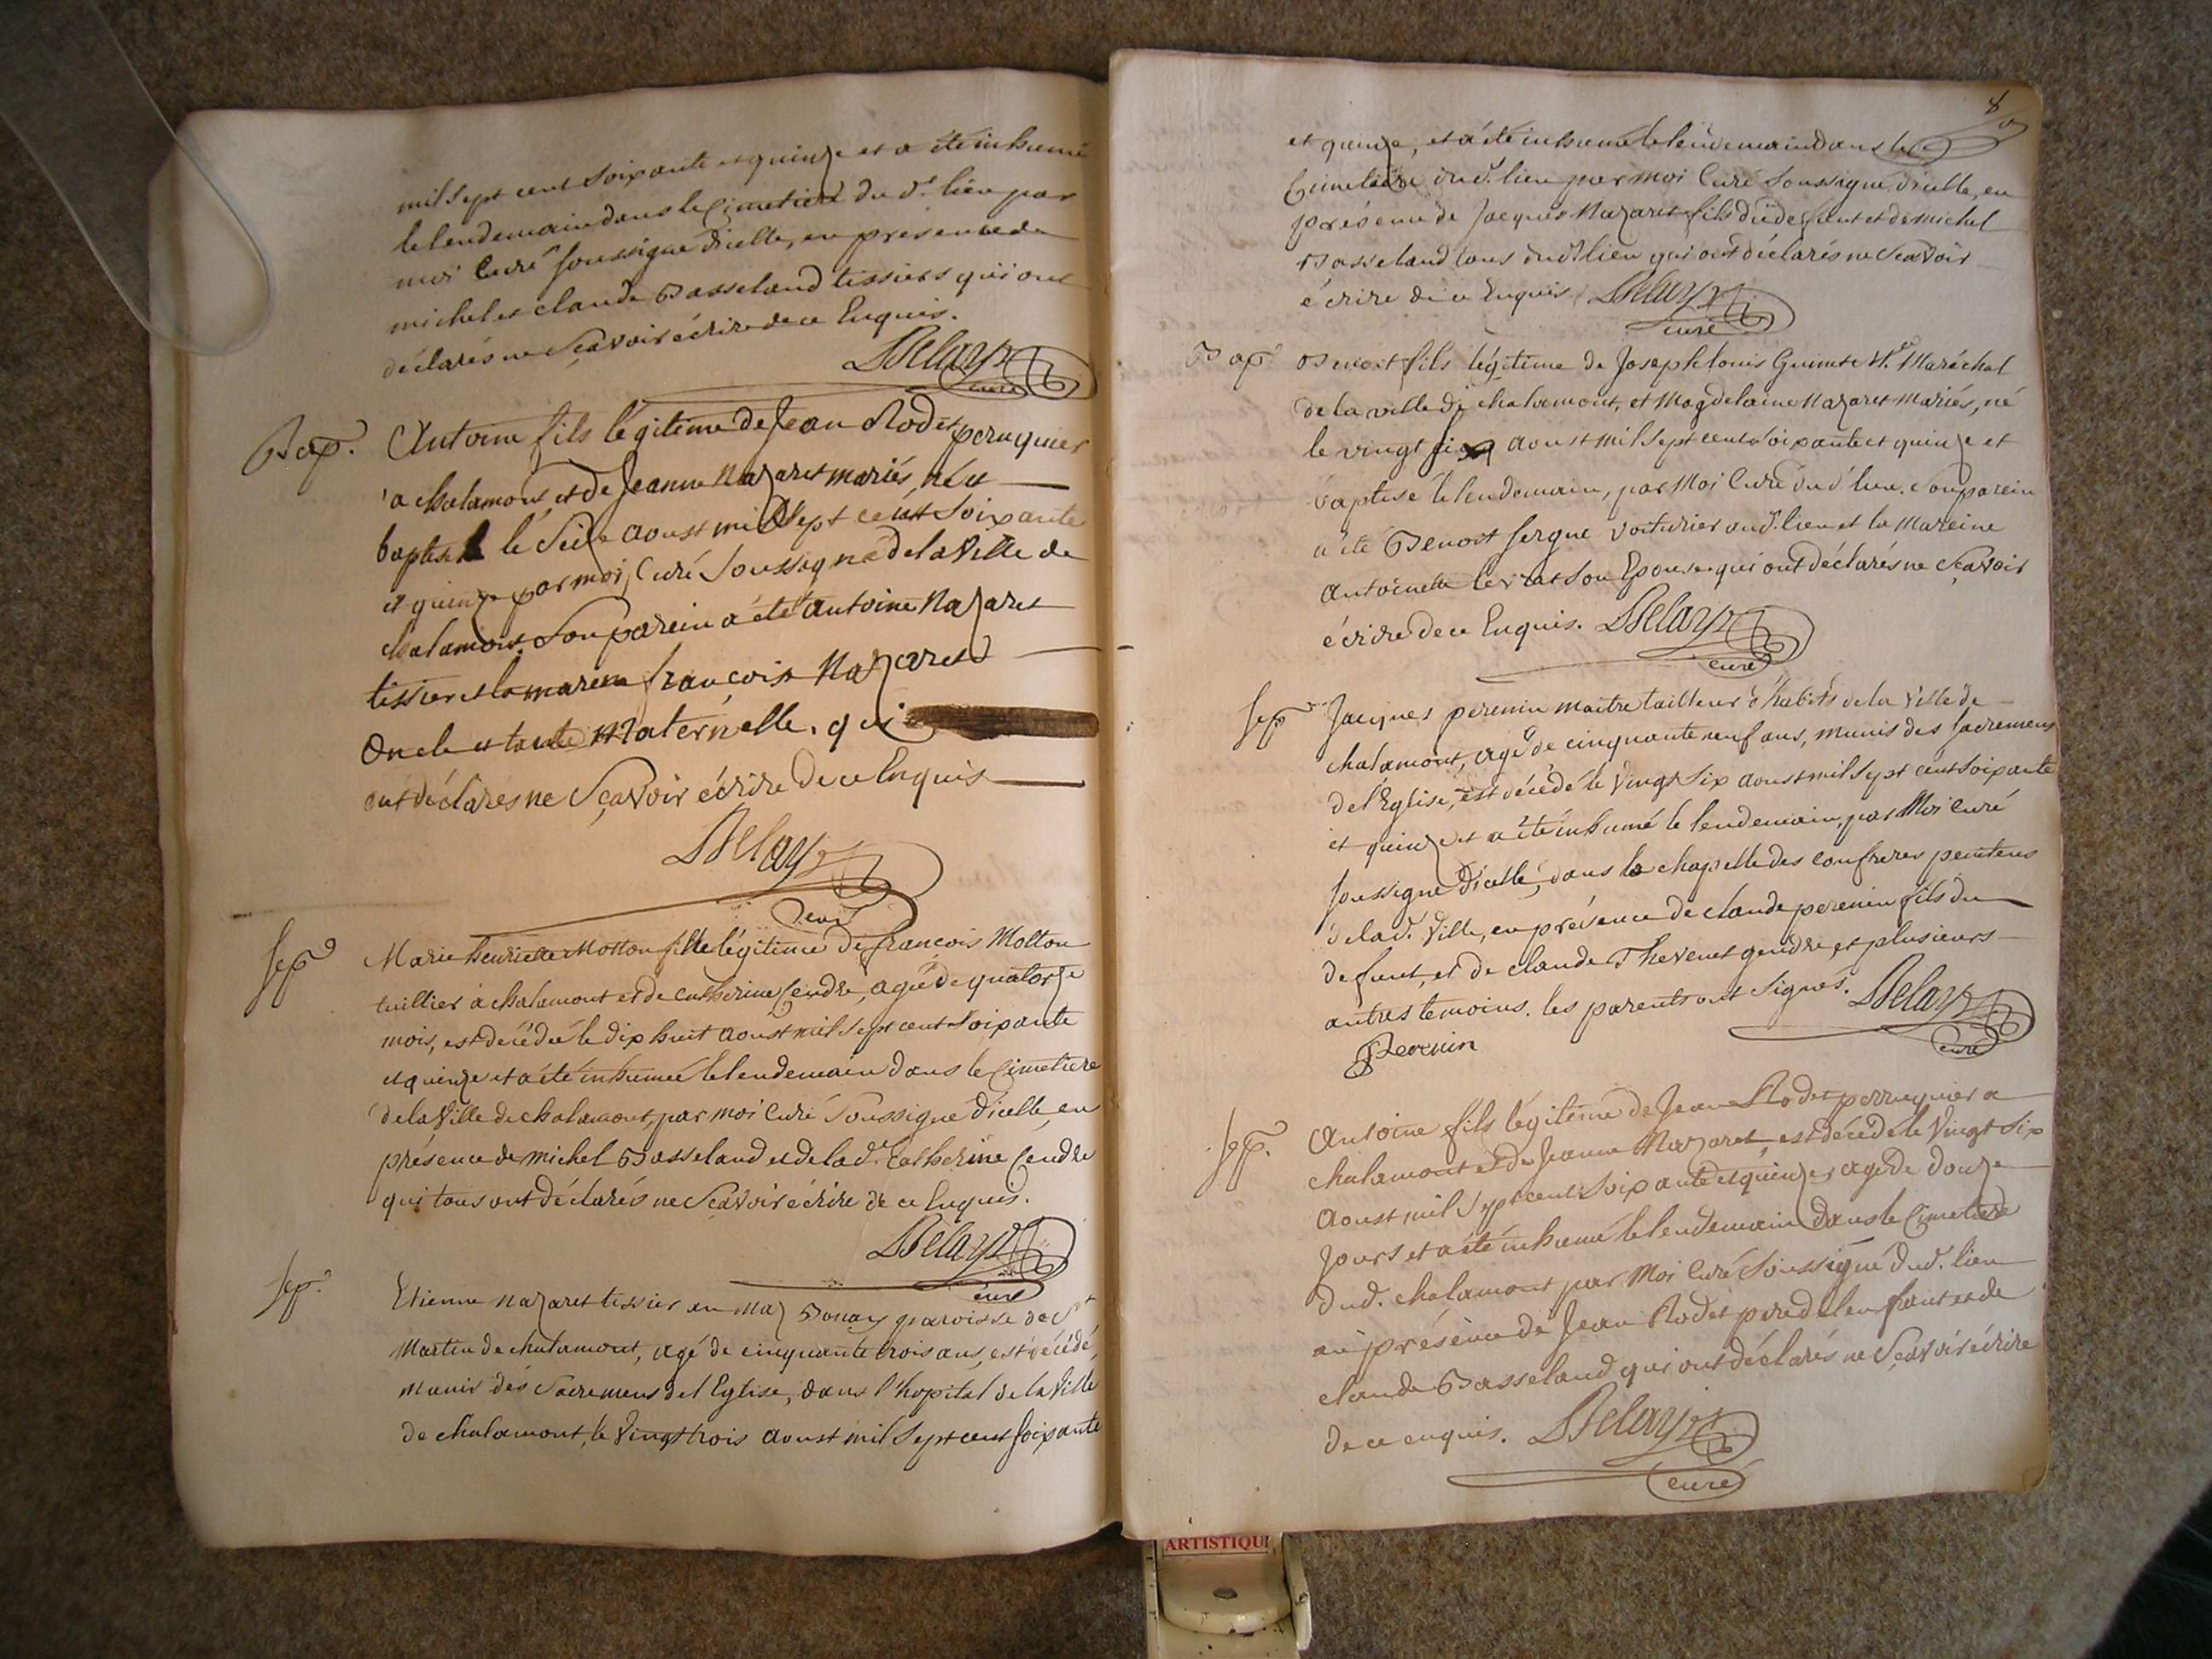 mil sept cent soixante et quinze et a été inhumé
le lendemain dans le Cimetiere du d. lieu par
moi Curé soussigné d'icelle, en présence de
michel et claude Basseland tissiers qui ont
déclarés ne Sçavoir écrire de ce Enquis.
Delay
curé
Bap. Antoine fils légitime de Jean Rodet peruquier
a chalamont, et de Jeanne Nazaret mariés, né et
baptisé le seize aoust mil sept cent soixante
et quinze par moi Curé Soussigné de la Ville de
chalamont. Son parein a été Antoine Nazaret
tissier et la mareine françoise Nazaret
Oncle et tante Maternelle. qui
ont déclarés ne Sçavoir écrire de ce Enquis
Delay
Curé
Sep. Marie henriette Motton fille légitime de françois Motton
tuillier à chalamont et de Catherine Cendre, agée de quatorze
mois, est décédée le dix huit aoust mil sept cent soixante
et quinze et a été inhumée le lendemain dans le Cimetiere
de la Ville de chalamont, par moi Curé Soussigné d'icelle, en
présence de michel Basseland et de lad. Catherine Cendre
qui tous ont déclarés ne Sçavoir écrire de ce Enquis.
Delay
curé
Sep. Etienne Nazaret tissier au Maz Bonay paroisse de St
Martin de chalamont, agé de cinquante trois ans, est décédé,
munis des Sacremens de l'Eglise, dans l'hopital de la Ville
de chalamont, le Vingt trois aoust mil sept cent soixante
8
et quinze, et a été inhumé le lendemain dans le
Cimetiere dud. lieu par moi Curé Soussigné d'icelle, en
présence de Jacques Nazaret fils du défunt et de michel
Basseland tous dud. lieu qui ont déclarés ne Scavoir
écrire de ce Enquis. Delay
curé
Bap. Benoit fils légitime de Joseph louis Guinet Me. Maréchal
de la ville de chalamont, et Magdelaine Nazaret mariés, né
le vingt six aoust mil sept cent soixante et quinze et
baptisé le lendemain, par Moi Curé dud. lieu. Son parein
a été Benoit sergue voiturier aud. lieu et la Mareine
Antoinette Levrat Son Epouse qui ont déclarés ne Sçavoir
écrire de ce Enquis. Delay
curé
Sep. Jacques perenin maitre tailleur d'habits de la Ville de
chalamont, agé de cinquante neuf ans, munis des Sacremens
de l'Eglise, est décédé le Vingt Six aoust mil sept cent soixante
et quinze et a été inhumé le lendemain, par Moi Curé
soussigné d'icelle, dans la chapelle des confreres penitens
de lad. Ville, en présence de claude perenin fils du
defunt, et de claude Thevenet gendre, et plusieurs
autres temoins. les parents ont signés. Delay
Perenin curé
Sep. Antoine fils légitime de Jean Rodet perruquier a
chalamont et de Jeanne Nazaret, est décédé le Vingt Six
Aoust mil sept cent soixante et quinze, agé de douze
Jours et a été inhumé le lendemain dans le Cimetiere
dud. chalamont par Moi Curé Soussigné dud. lieu
en présence de Jean Rodet pere de lenfant et de
claude Basseland qui ont déclarés ne Sçavoir écrire
de ce enquis. Delay
curé
ARTISTIQU